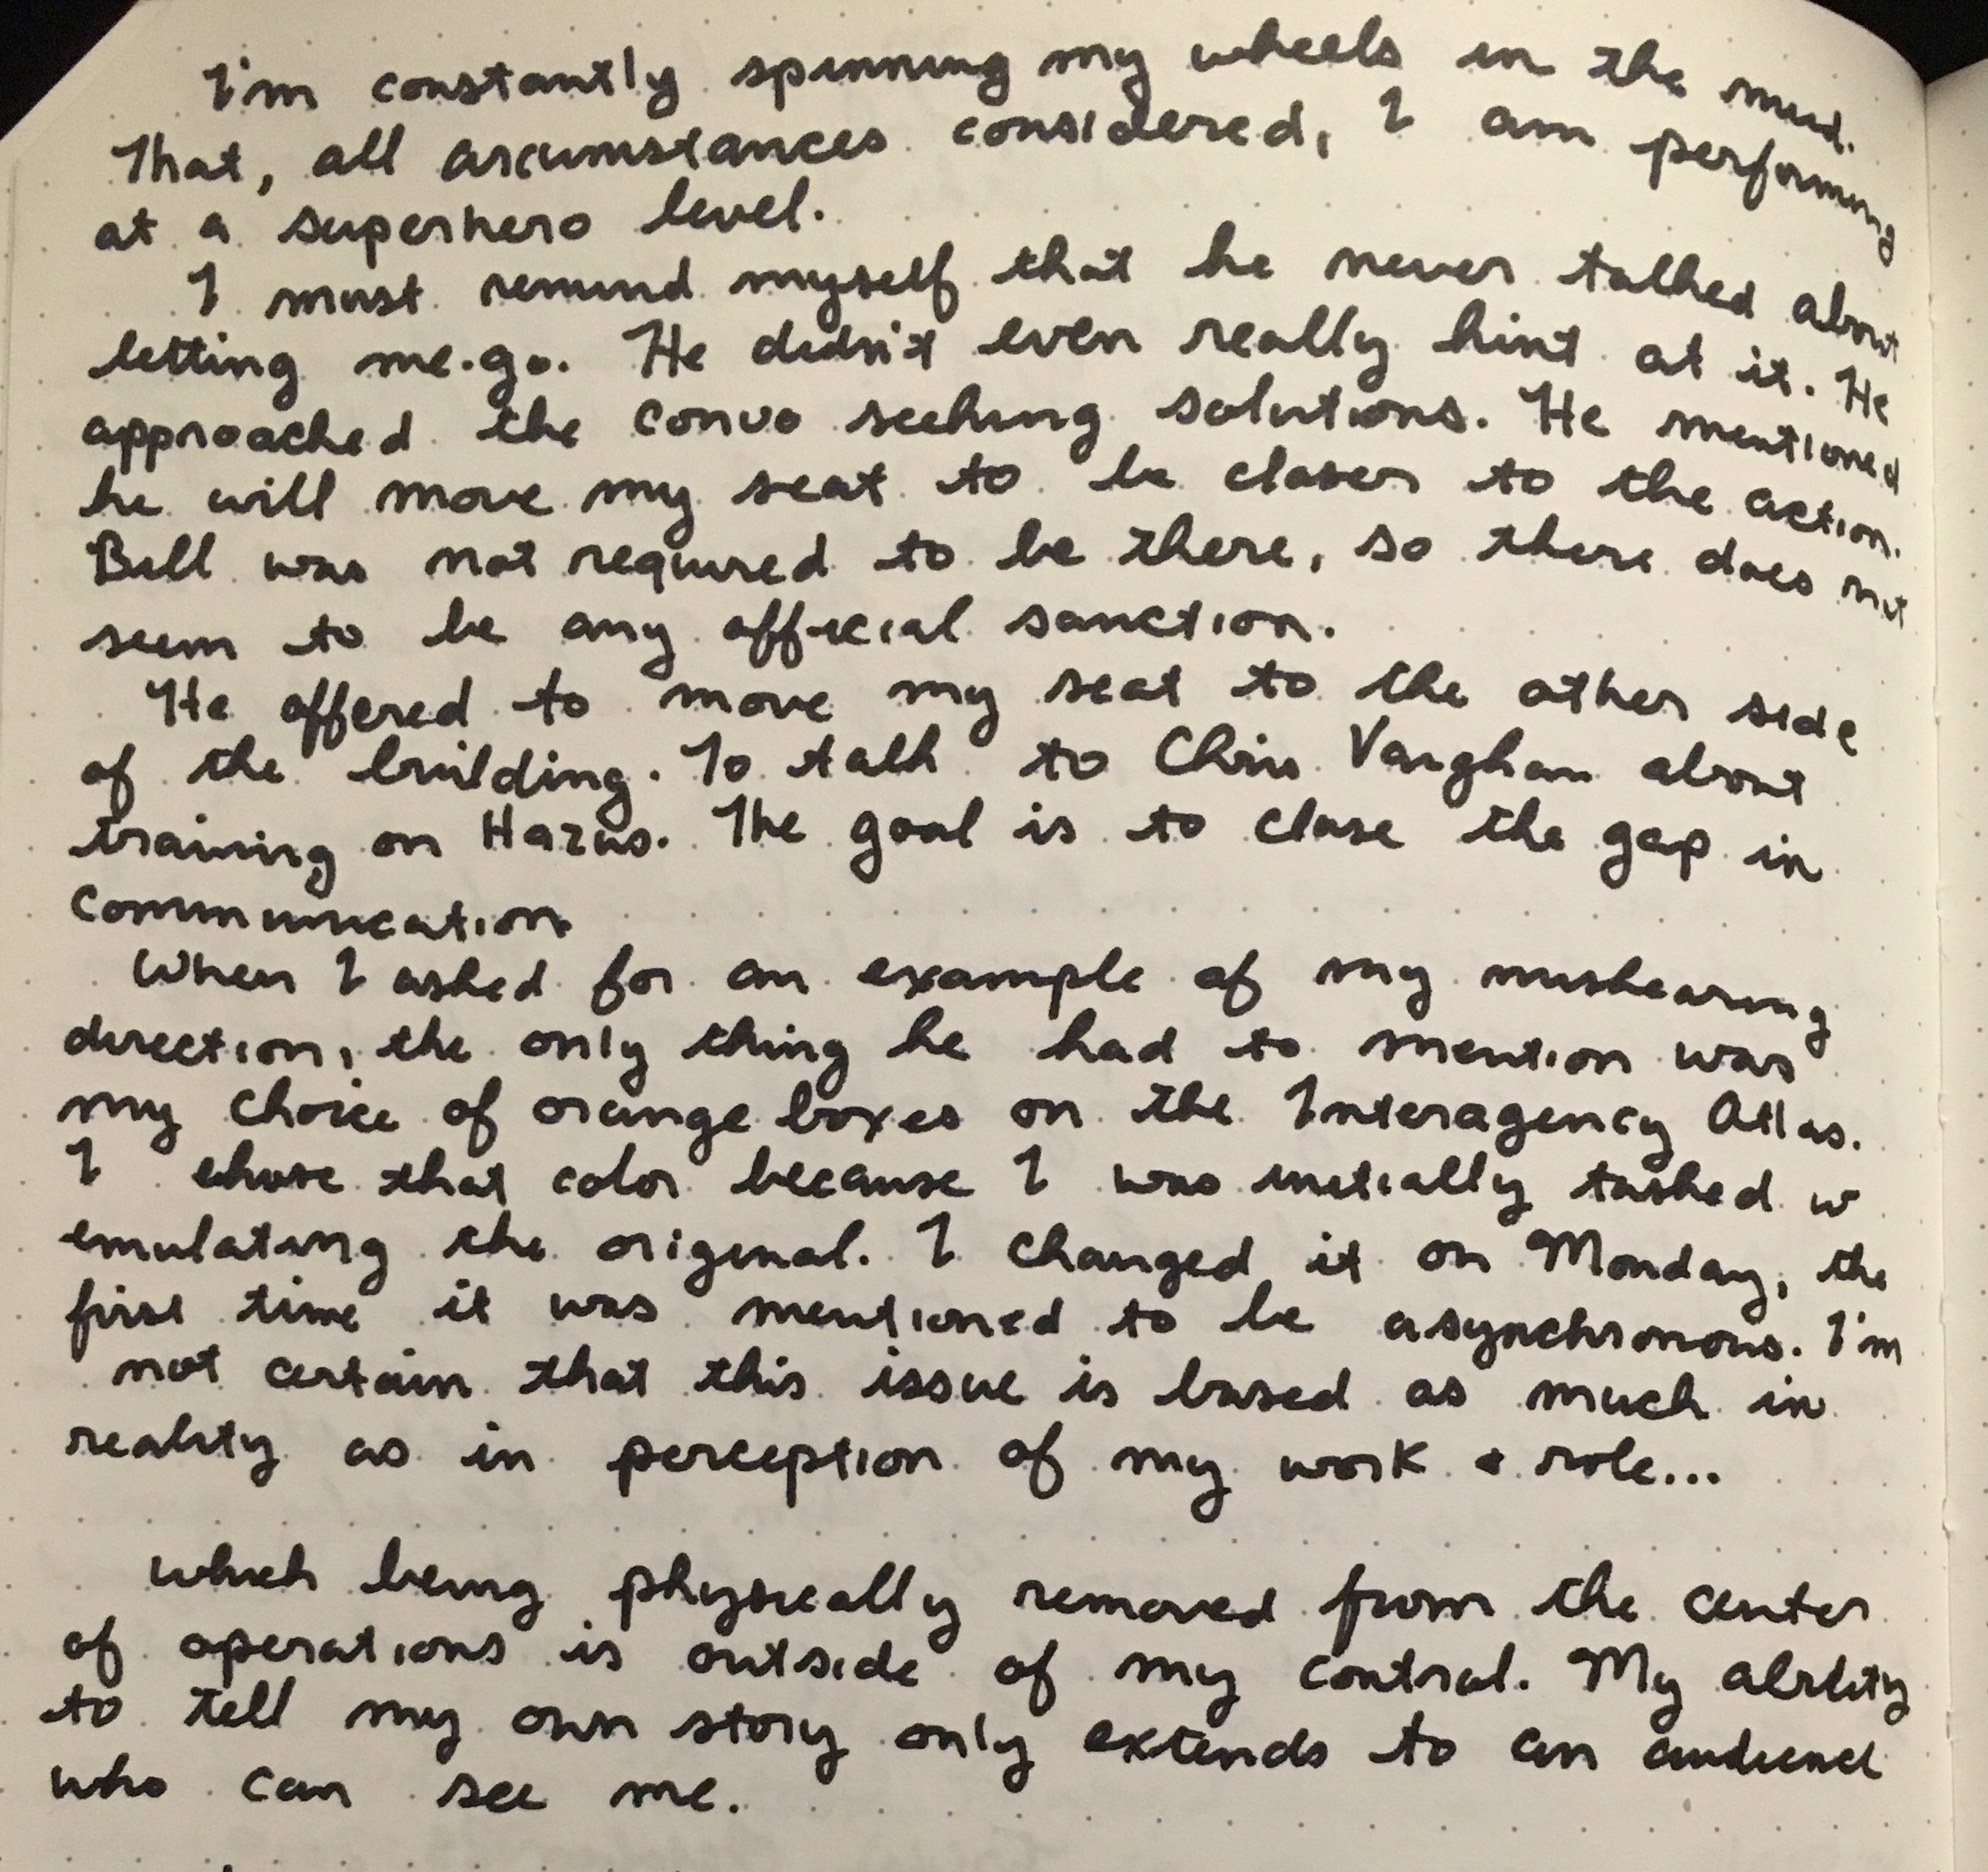 I'm constantly spinning my wheels in the mud.
That, all circumstances considered, I am performing
at a superhero level.
I must remind myself that he never talked about
letting me go. He didn't even really hint at it. He
approached the convo seeking solutions. He mentioned
he will move my seat to be closer to the action.
Bill was not required to be there, so there does not
seem to be any official sanction.
He offered to move my seat to the other side
of the building. To talk to Chris Vaughan about
training on Hazus. The goal is to close the gap in
communication.
When I asked for an example of my mishearing
direction, the only thing he had to mention was
my choice of orange boxes on the Interagency Atlas.
I chose that color because I was initially tasked w
emulating the original. I changed it on Monday, the
first time it was mentioned to be asynchronous. I'm
not certain that this issue is based as much in
reality as in perception of my work + role...
which being physically removed from the center
of operations is outside of my control. My ability
to tell my own story only extends to an audience
who can see me.